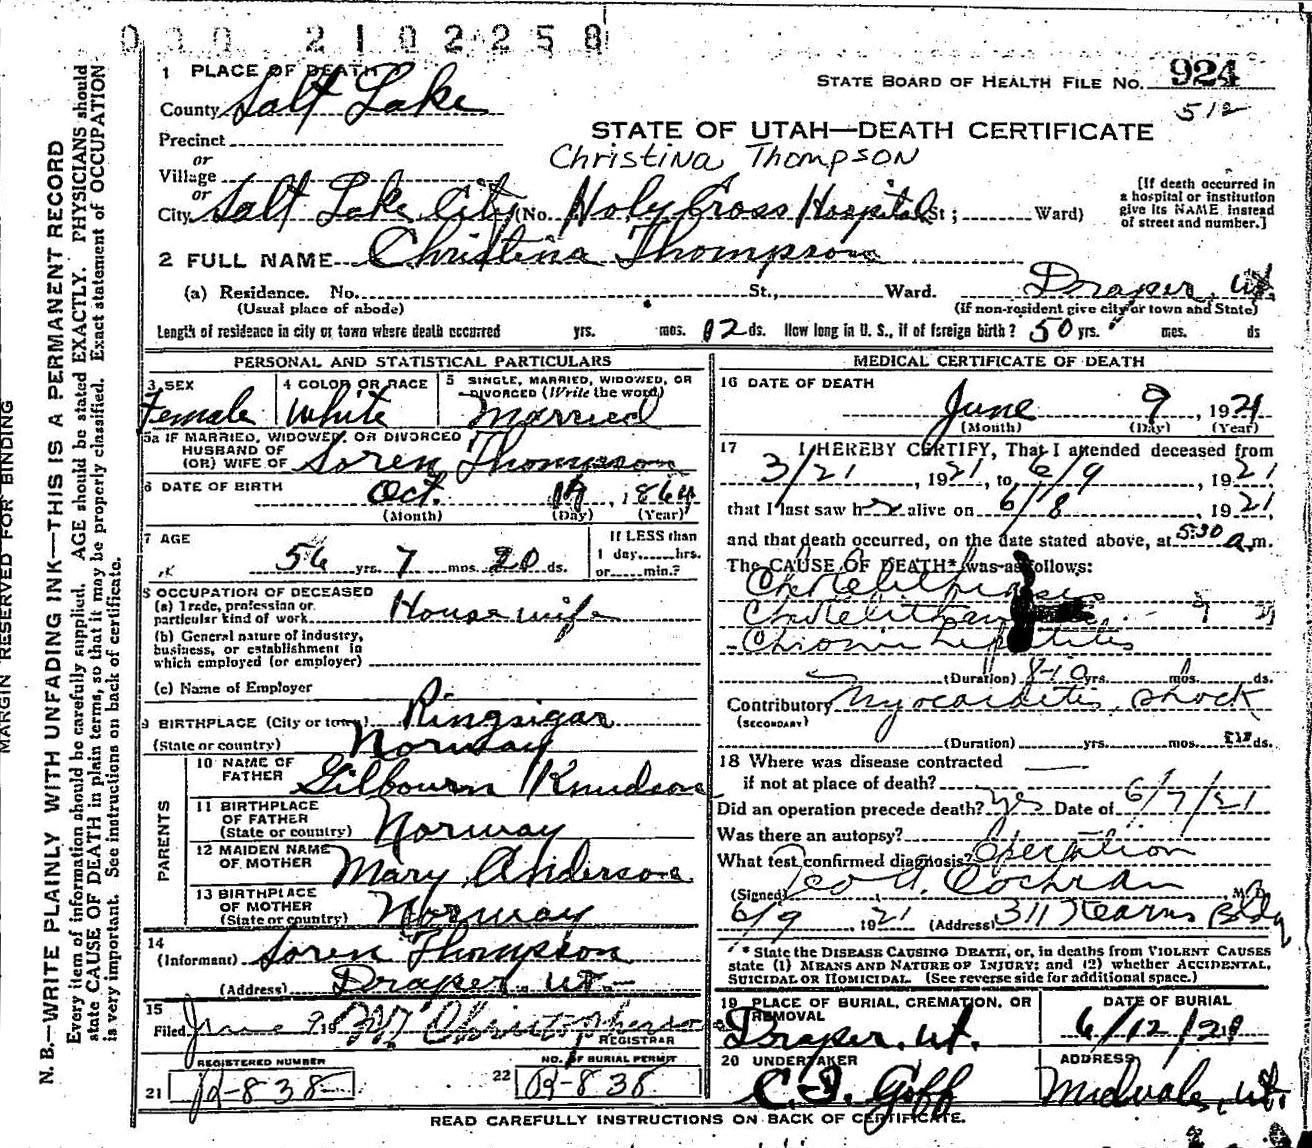 000 2102258
1 PLACE OF DEATH
County Salt Lake
STATE BOARD OF HEALTH FILE NO. 924
512
Precinct
STATE OF UTAH—DEATH CERTIFICATE
Christina Thompson
or
Village
or
City Salt Lake City (No. Holy Cross Hospital St; Ward)
[If death occurred in
a hospital or institution
give its NAME instead
of street and number.]
2 FULL NAME Christina Thompson
(a) Residence. No. St., Ward. Draper, Ut.
(Usual place of abode) (If non-resident give city or town and State)
Length of residence in city or town where death occurred yrs. mos. 12 ds. How long in U. S., if of foreign birth? 50 yrs. mos. ds
PERSONAL AND STATISTICAL PARTICULARS
3 SEX
Female
4 COLOR OR RACE
White
5 SINGLE, MARRIED, WIDOWED, OR
DIVORCED (Write the word)
Married
5a IF MARRIED, WIDOWED, OR DIVORCED
HUSBAND OF
(OR) WIFE OF Soren Thompson
6 DATE OF BIRTH Oct. 19, 1864
(Month) (Day) (Year)
7 AGE
56 yrs. 7 mos. 20 ds.
If LESS than
1 day, hrs.
or min.?
8 OCCUPATION OF DECEASED
(a) Trade, profession or
particular kind of work House wife
(b) General nature of industry,
business, or establishment in
which employed (or employer)
(c) Name of Employer
9 BIRTHPLACE (City or town) Ringsigar
(State or country) Norway
PARENTS
10 NAME OF
FATHER Gilbourn Knudson
11 BIRTHPLACE
OF FATHER
(State or country) Norway
12 MAIDEN NAME
OF MOTHER Mary Anderson
13 BIRTHPLACE
OF MOTHER
(State or country) Norway
14
(Informant) Soren Thompson
(Address) Draper, Ut.
15
Filed June 9 19
REGISTRAR
REGISTERED NUMBER
21 R-838
NO. OF BURIAL PERMIT
22 R-838
MEDICAL CERTIFICATE OF DEATH
16 DATE OF DEATH
June 9, 1921
(Month) (Day) (Year)
17 I HEREBY CERTIFY, That I attended deceased from
3/21, 1921, to 6/9, 1921
that I last saw her alive on 6/8, 1921,
and that death occurred, on the date stated above, at 5:30 a.m.
The CAUSE OF DEATH* was as follows:
Chronic
(Duration) 8-10 yrs. mos. ds.
Contributory Myocarditis, shock
(SECONDARY)
(Duration) yrs. mos. ds.
18 Where was disease contracted
if not at place of death?
Did an operation precede death? yes Date of 6/7/21
Was there an autopsy?
What test confirmed diagnosis? Operation
(Signed) Geo A. Cochran M.D.
6/9 1921 (Address) 311 Kearns Bldg
* State the DISEASE CAUSING DEATH, or, in deaths from VIOLENT CAUSES
state (1) MEANS AND NATURE OF INJURY; and (2) whether ACCIDENTAL,
SUICIDAL OR HOMICIDAL. (See reverse side for additional space.)
19 PLACE OF BURIAL, CREMATION, OR
REMOVAL
Draper, Ut.
DATE OF BURIAL
6/12/21
20 UNDERTAKER
C. D. Goff
ADDRESS
Midvale, Ut.
READ CAREFULLY INSTRUCTIONS ON BACK OF CERTIFICATE.
MARGIN RESERVED FOR BINDING
N. B.—WRITE PLAINLY WITH UNFADING INK—THIS IS A PERMANENT RECORD
Every item of information should be carefully supplied. AGE should be stated EXACTLY. PHYSICIANS should
state CAUSE OF DEATH in plain terms, so that it may be properly classified. Exact statement of OCCUPATION
is very important. See instructions on back of certificate.